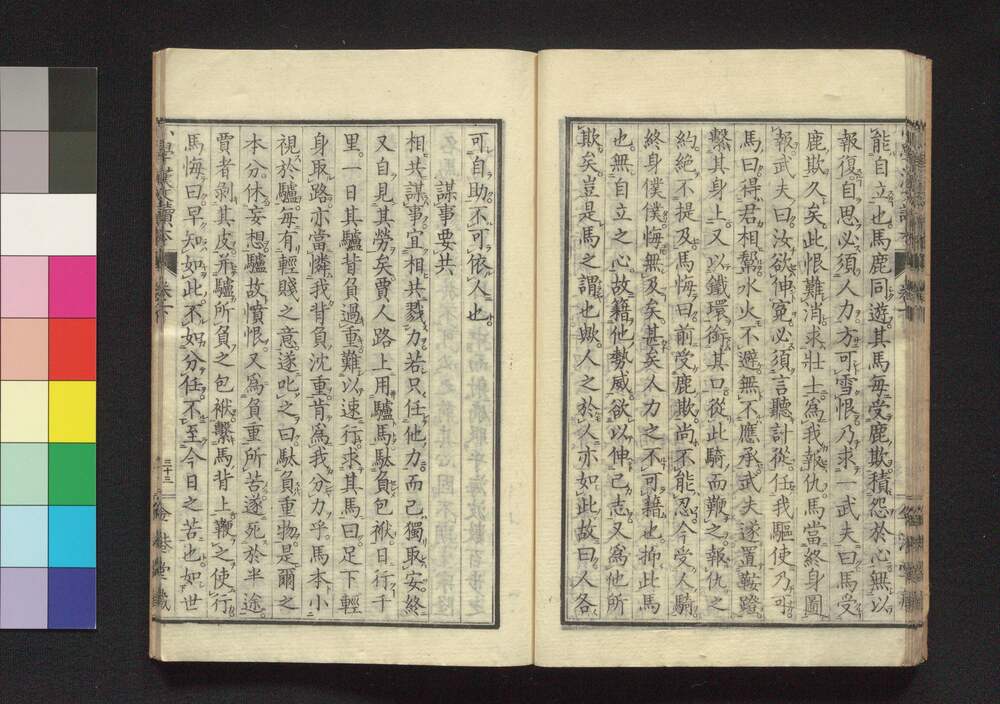 能自立也馬鹿同遊其馬每受鹿欺積怨於心無以
報復自思必須人力方可雪恨乃求一武夫曰馬受
鹿欺久矣此恨難消求壯士爲我報仇馬當終身圖
報武夫曰汝欲伸寃必須言聽計從任我驅使乃可
馬曰得君相幫水火不避無不應承武夫遂置鞍蹬
繫其身上又以鐵環銜其口從此騎而鞭之報仇之
約絶不提及馬悔曰前受鹿欺尚不能忍今受人騎
終身僕僕悔無及矣甚矣人力之不可藉也抑此馬
也無自立之心故籍他勢威欲以伸己志又爲他所
欺矣豈是馬之謂也歟人之於人亦如此故曰人各
可自助不可依人也
謀事要共
相共謀事宜相共戮力若只任他力而己獨取安終
又自見其勞矣賈人路上用驢馬馱負包袱日行千
里一日其驢背負過重難以速行求其馬曰足下輕
身取路亦當憐我背負沈重肯爲我分力乎馬本小
視於驢每有輕賤之意遂叱之曰馱負重物是爾之
本分休妄想驢故憤恨又爲負重所苦遂死於半途
賈者剝其皮并驢所負之包袱繫馬背上鞭之使行
馬悔曰早知如此不如分任不至今日之苦也如世
小學漢文讀本 卷下 三十三